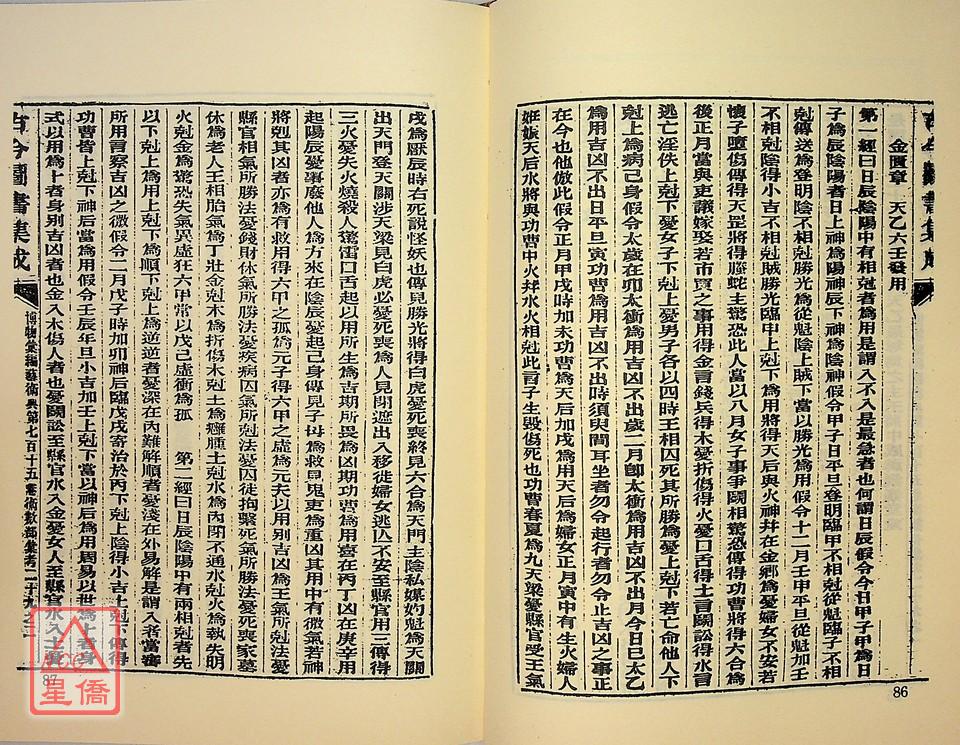 金匱章　天乙六壬發用
第一經曰日辰陰陽中有相尅者爲用是謂入不入是最急者也何謂日辰假令今日甲子甲爲日
子爲辰陰陽者日上神爲陽神辰下神爲陰神假令甲子日平旦登明臨甲不相尅從魁臨子不相
尅傳送爲登明陰不相尅勝光爲從魁陰上賊下當以勝光爲用假令十二月壬申平旦從魁加壬
不相尅陰得小吉不相尅賊勝光臨申上尅下爲用將得天后與火神并在金鄉爲憂婦女不安若
懷子墮傷傳得天罡將得螣蛇主驚恐此人當以八月女子事爭鬬相驚恐傳得功曹將得六合爲
後正月當與吏議嫁娶若市賈之事用得金言錢兵得木憂折傷得火憂口舌得土言鬬訟得水言
逃亡淫佚上尅下憂女子下尅上憂男子各以四時王相囚死其所勝爲憂上尅下若亡命他人下
尅上爲病己身假令太歲在卯太衝爲用吉凶不出歲二月卽太衝爲用吉凶不出月今日巳太乙
爲用吉凶不出日平旦寅功曹爲用吉凶不出時須臾間耳坐者勿令起行者勿令止吉凶之事正
在今也他倣此假令正月甲戌時加未功曹爲天后加戌爲用天后爲婦女正月寅中有生火婦人
姙娠天后水將與功曹中火并水火相尅此言子生毀傷死也功曹春夏爲九天梁憂縣官受王氣
86
戌爲厭辰時右死說怪妖也傳見勝光將得白虎憂死喪終見六合爲天門主陰私媒妁魁爲天關
出天門登天關涉天梁見白虎必憂死喪爲人見閉遮出入移徙婦女逃亡不安至縣官用三傳得
三火憂失火燒殺人驚衝口舌起以用所生爲吉期所畏爲凶期功曹爲用喜在丙丁凶在庚辛用
起陽辰憂事廢他人爲方來在陰辰憂起己身傳見子抖爲救見鬼吏爲重凶其用中有微氣若神
將剋其凶者亦爲有救用得六甲之孤爲元子得六甲之虛爲元夫以用別吉凶爲王氣所尅法憂
縣官相氣所勝法憂錢財休氣所勝法憂疾病囚氣所尅法憂囚徒拘繫死氣所勝法憂死喪家墓
休爲老人王相胎氣爲丁壯金尅木爲折傷木尅土爲癰腫土尅水爲內閉不通水尅火爲執失明
火尅金爲驚恐失氣異虛狂六甲常以戊己虛衝爲孤　　第二經曰日辰陰陽中有兩相尅者先
以下尅上爲用上尅下爲順下尅上爲逆逆者憂深在內難解順者憂淺在外易解是謂入者當審
所用言察吉凶之微假令二月戊子時加卯神后臨戊戌寄治於丙下尅上陰得小吉上尅下傳得
功曹皆上尅下神后當爲用假令壬辰年旦小吉加壬上尅下當以神后爲用周易以世爲卜者身
式以用爲卜者身別吉凶者也金入木傷人者也憂鬬訟至縣官水入金憂女人至縣官水入土
古今圖書集成
博物彙編藝術典第七百十五卷術數部彙考二十九之
87
星僑